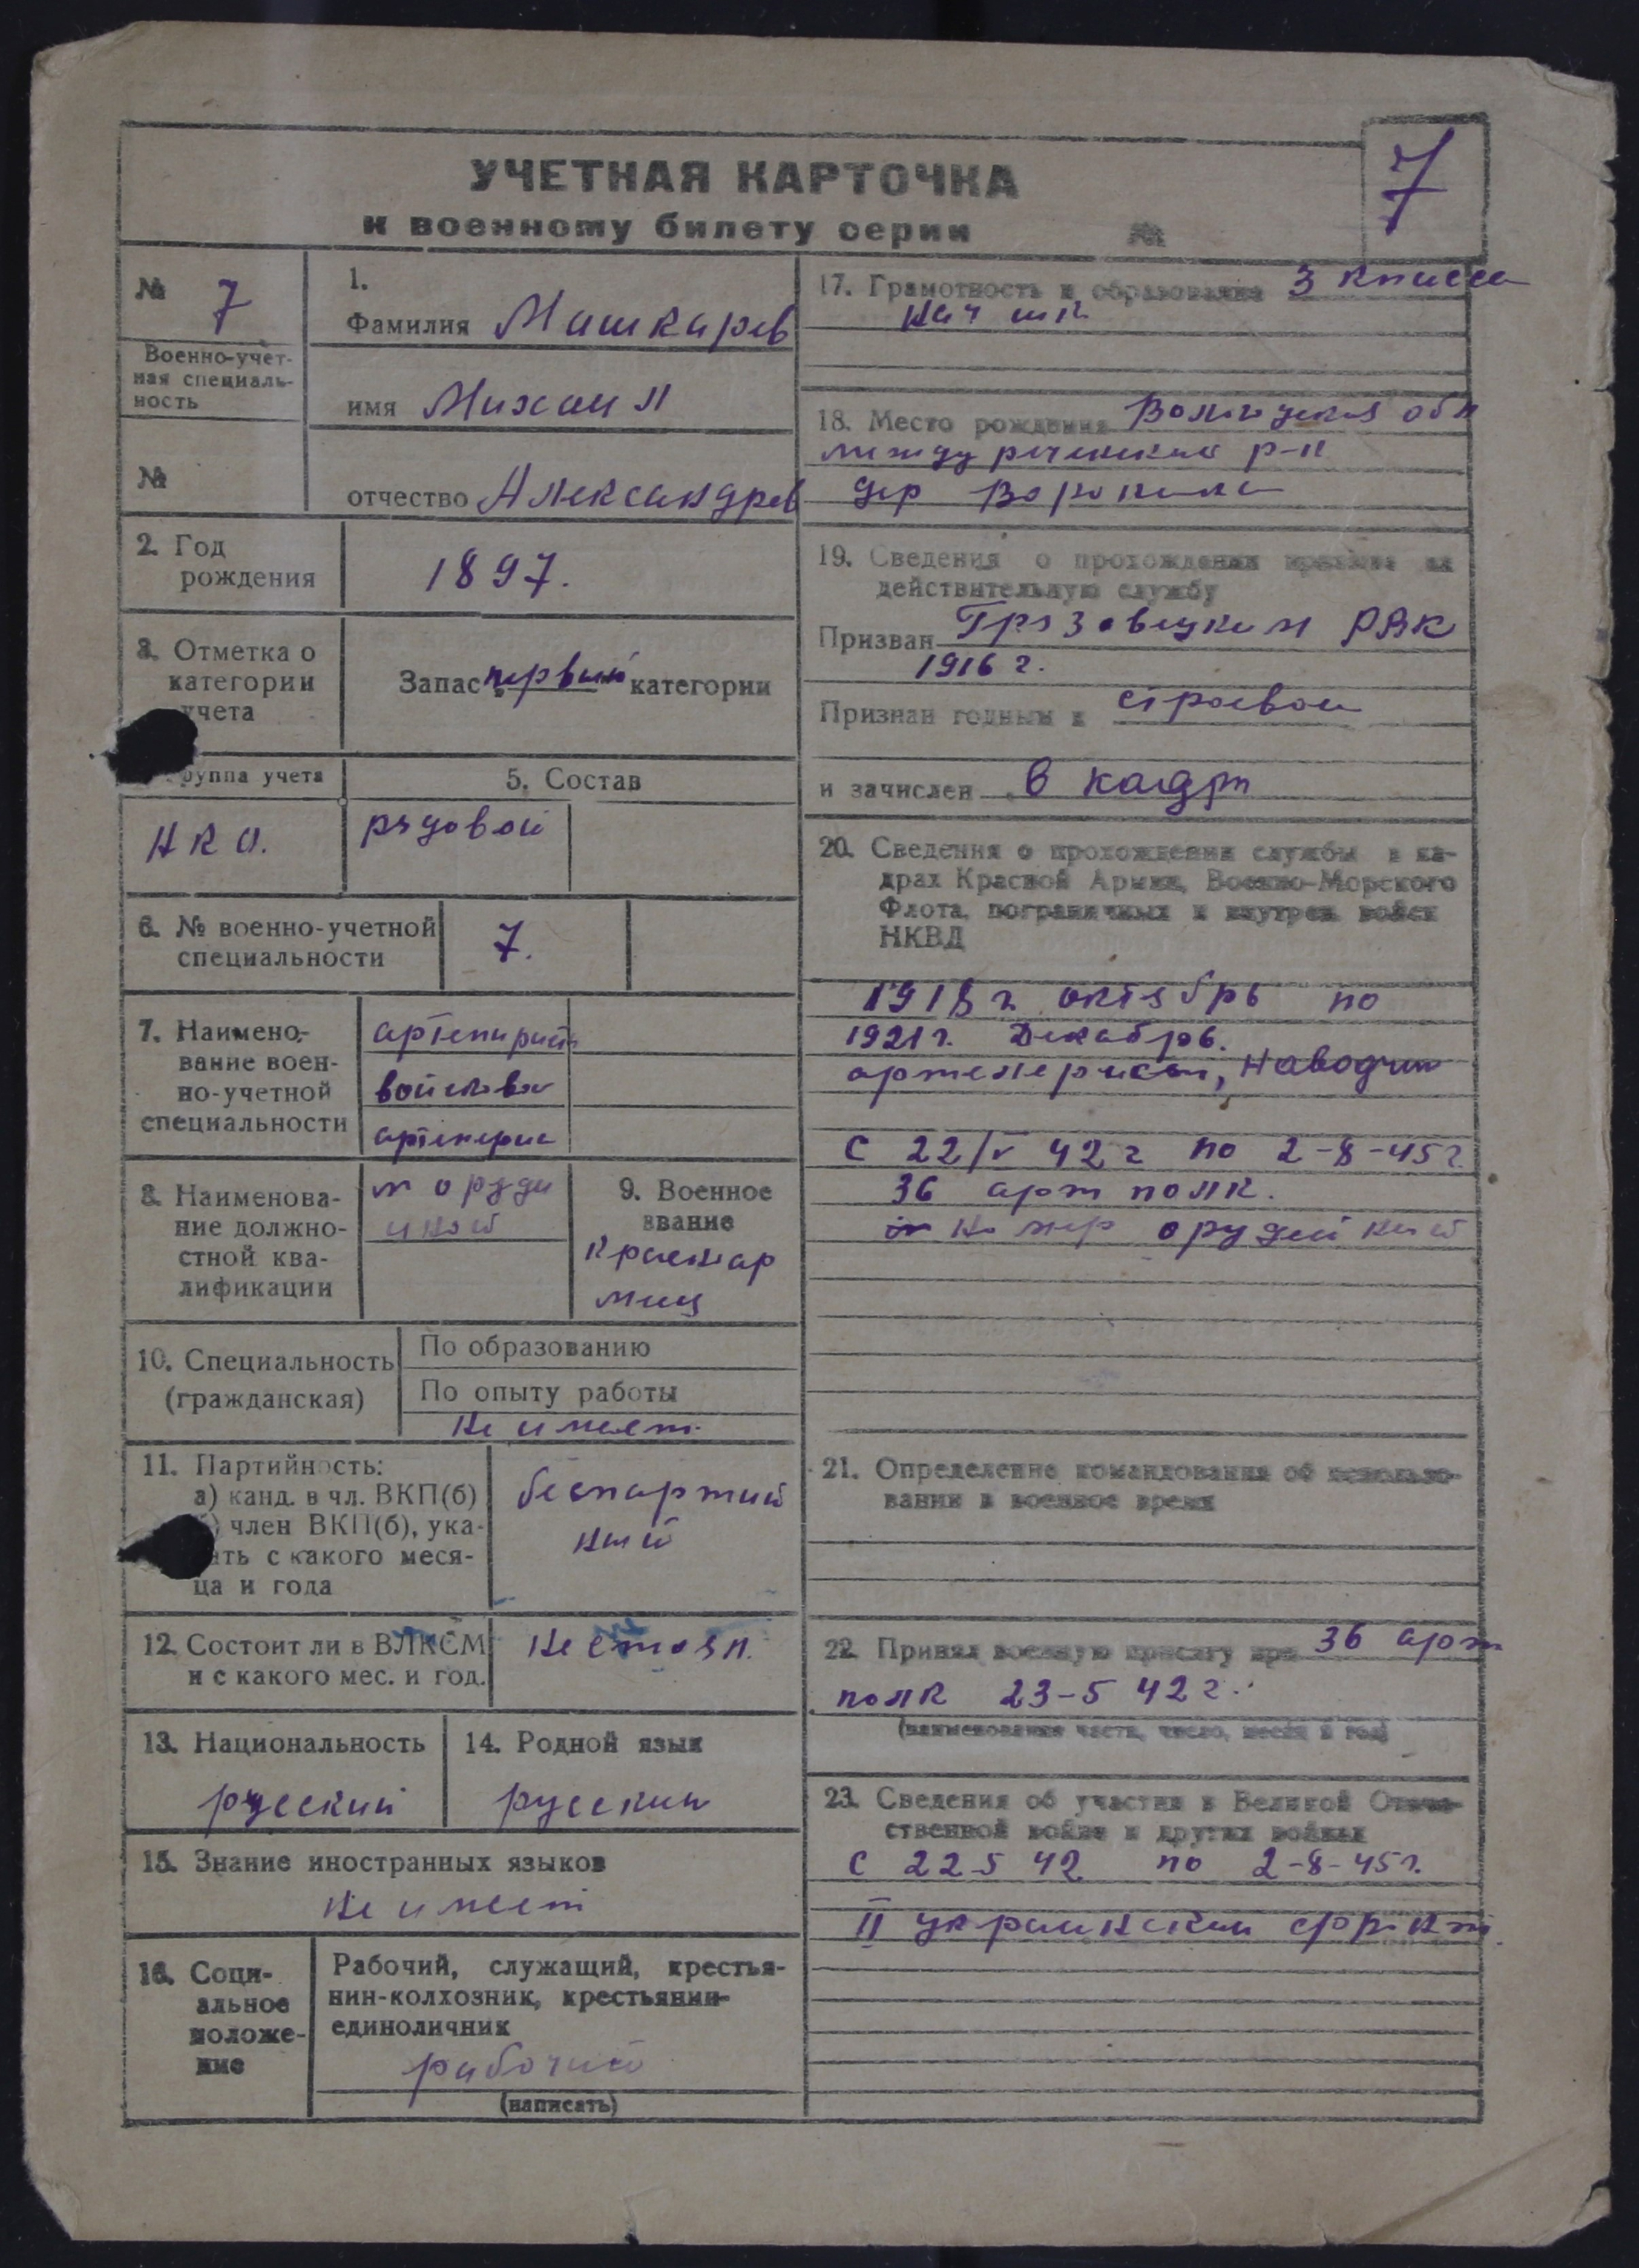 7
УЧЕТНАЯ КАРТОЧКА
к военному билету серии №
№ 7
Военно-учет-
ная специаль-
ность
№
1.
Фамилия Машкарев
имя Михаил
отчество Александров
2. Год
рождения
1897.
3. Отметка о
категории
учета
Запас первый категории
группа учета
НКО.
5. Состав
рядовой
6. № военно-учетной
специальности
7.
7. Наимено-
вание воен-
но-учетной
специальности
артилирист
войсковой
8. Наименова-
ние должно-
стной ква-
лификации
оруди
иной
9. Военное
звание
красноар
миц
10. Специальность
(гражданская)
По образованию
По опыту работы
не имеет.
11. Партийность:
а) канд. в чл. ВКП(б)
б) член ВКП(б), ука-
зать с какого меся-
ца и года
беспартий
ный
12. Состоит ли в ВЛКСМ
и с какого мес. и год.
не стоял.
13. Национальность
русский
14. Родной язык
русский
15. Знание иностранных языков
не имеет
16. Соци-
альное
положе-
ние
Рабочий, служащий, крестья-
нин-колхозник, крестьянин-
единоличник
рабочий
(написать)
17. Грамотность и образование 3 класса
нач шк
18. Место рождения Вологуская обл
между реченский р-н
дер
19. Сведения о прохождении призыва на
действительную службу
Призван Грязовецким РВК
1916 г.
Признан годным к строевой
и зачислен в кадры
20. Сведения о прохождении службы в ка-
драх Красной Армии, Военно-Морского
Флота, пограничных и внутрен. войск
НКВД
1918 г октябрь по
1921 г. Декабрь.
артелерист, наводчик
с 22/V 42 г по 2-8-45 г.
36 арт полк.
номер орудейный
21. Определение командования об использо-
вании в военное время
22. Принял военную присягу при 36 арт
полк 23-5 42 г.
(наименование части, число, месяц и год)
23. Сведения об участии в Великой Отече-
ственной войне и других войнах
с 22 5 42 по 2-8-45 г.
II украинский фронт.